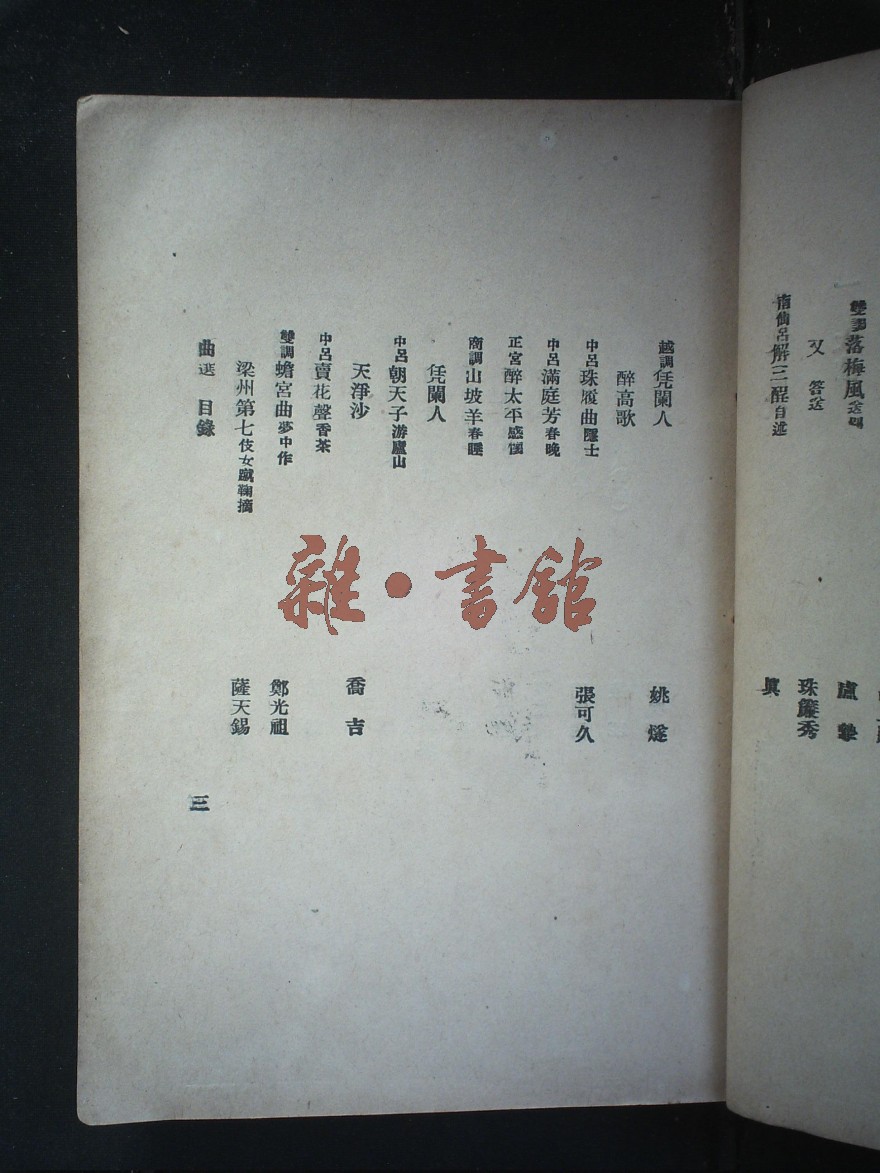 雙調落梅風
又 答
珠簾秀
南仙呂解三酲自述
眞
越調凭闌人 姚燧
醉高歌
中呂珠履曲隱士 張可久
中呂滿庭芳春晚
正宮醉太平感懷
商調山坡羊春睡
凭闌人
中呂朝天子游廬山
天淨沙 喬吉
中呂賣花聲香茶
雙調蟾宮曲夢中作 鄭光祖
梁州第七伎女蹴鞠摘 薩天錫
曲選 目錄
三
雜·書館